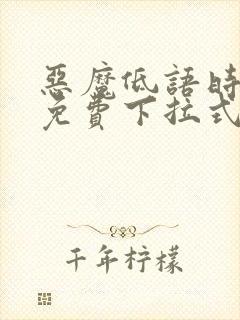 惡魔低語時
免費下拉式
千年柠檬